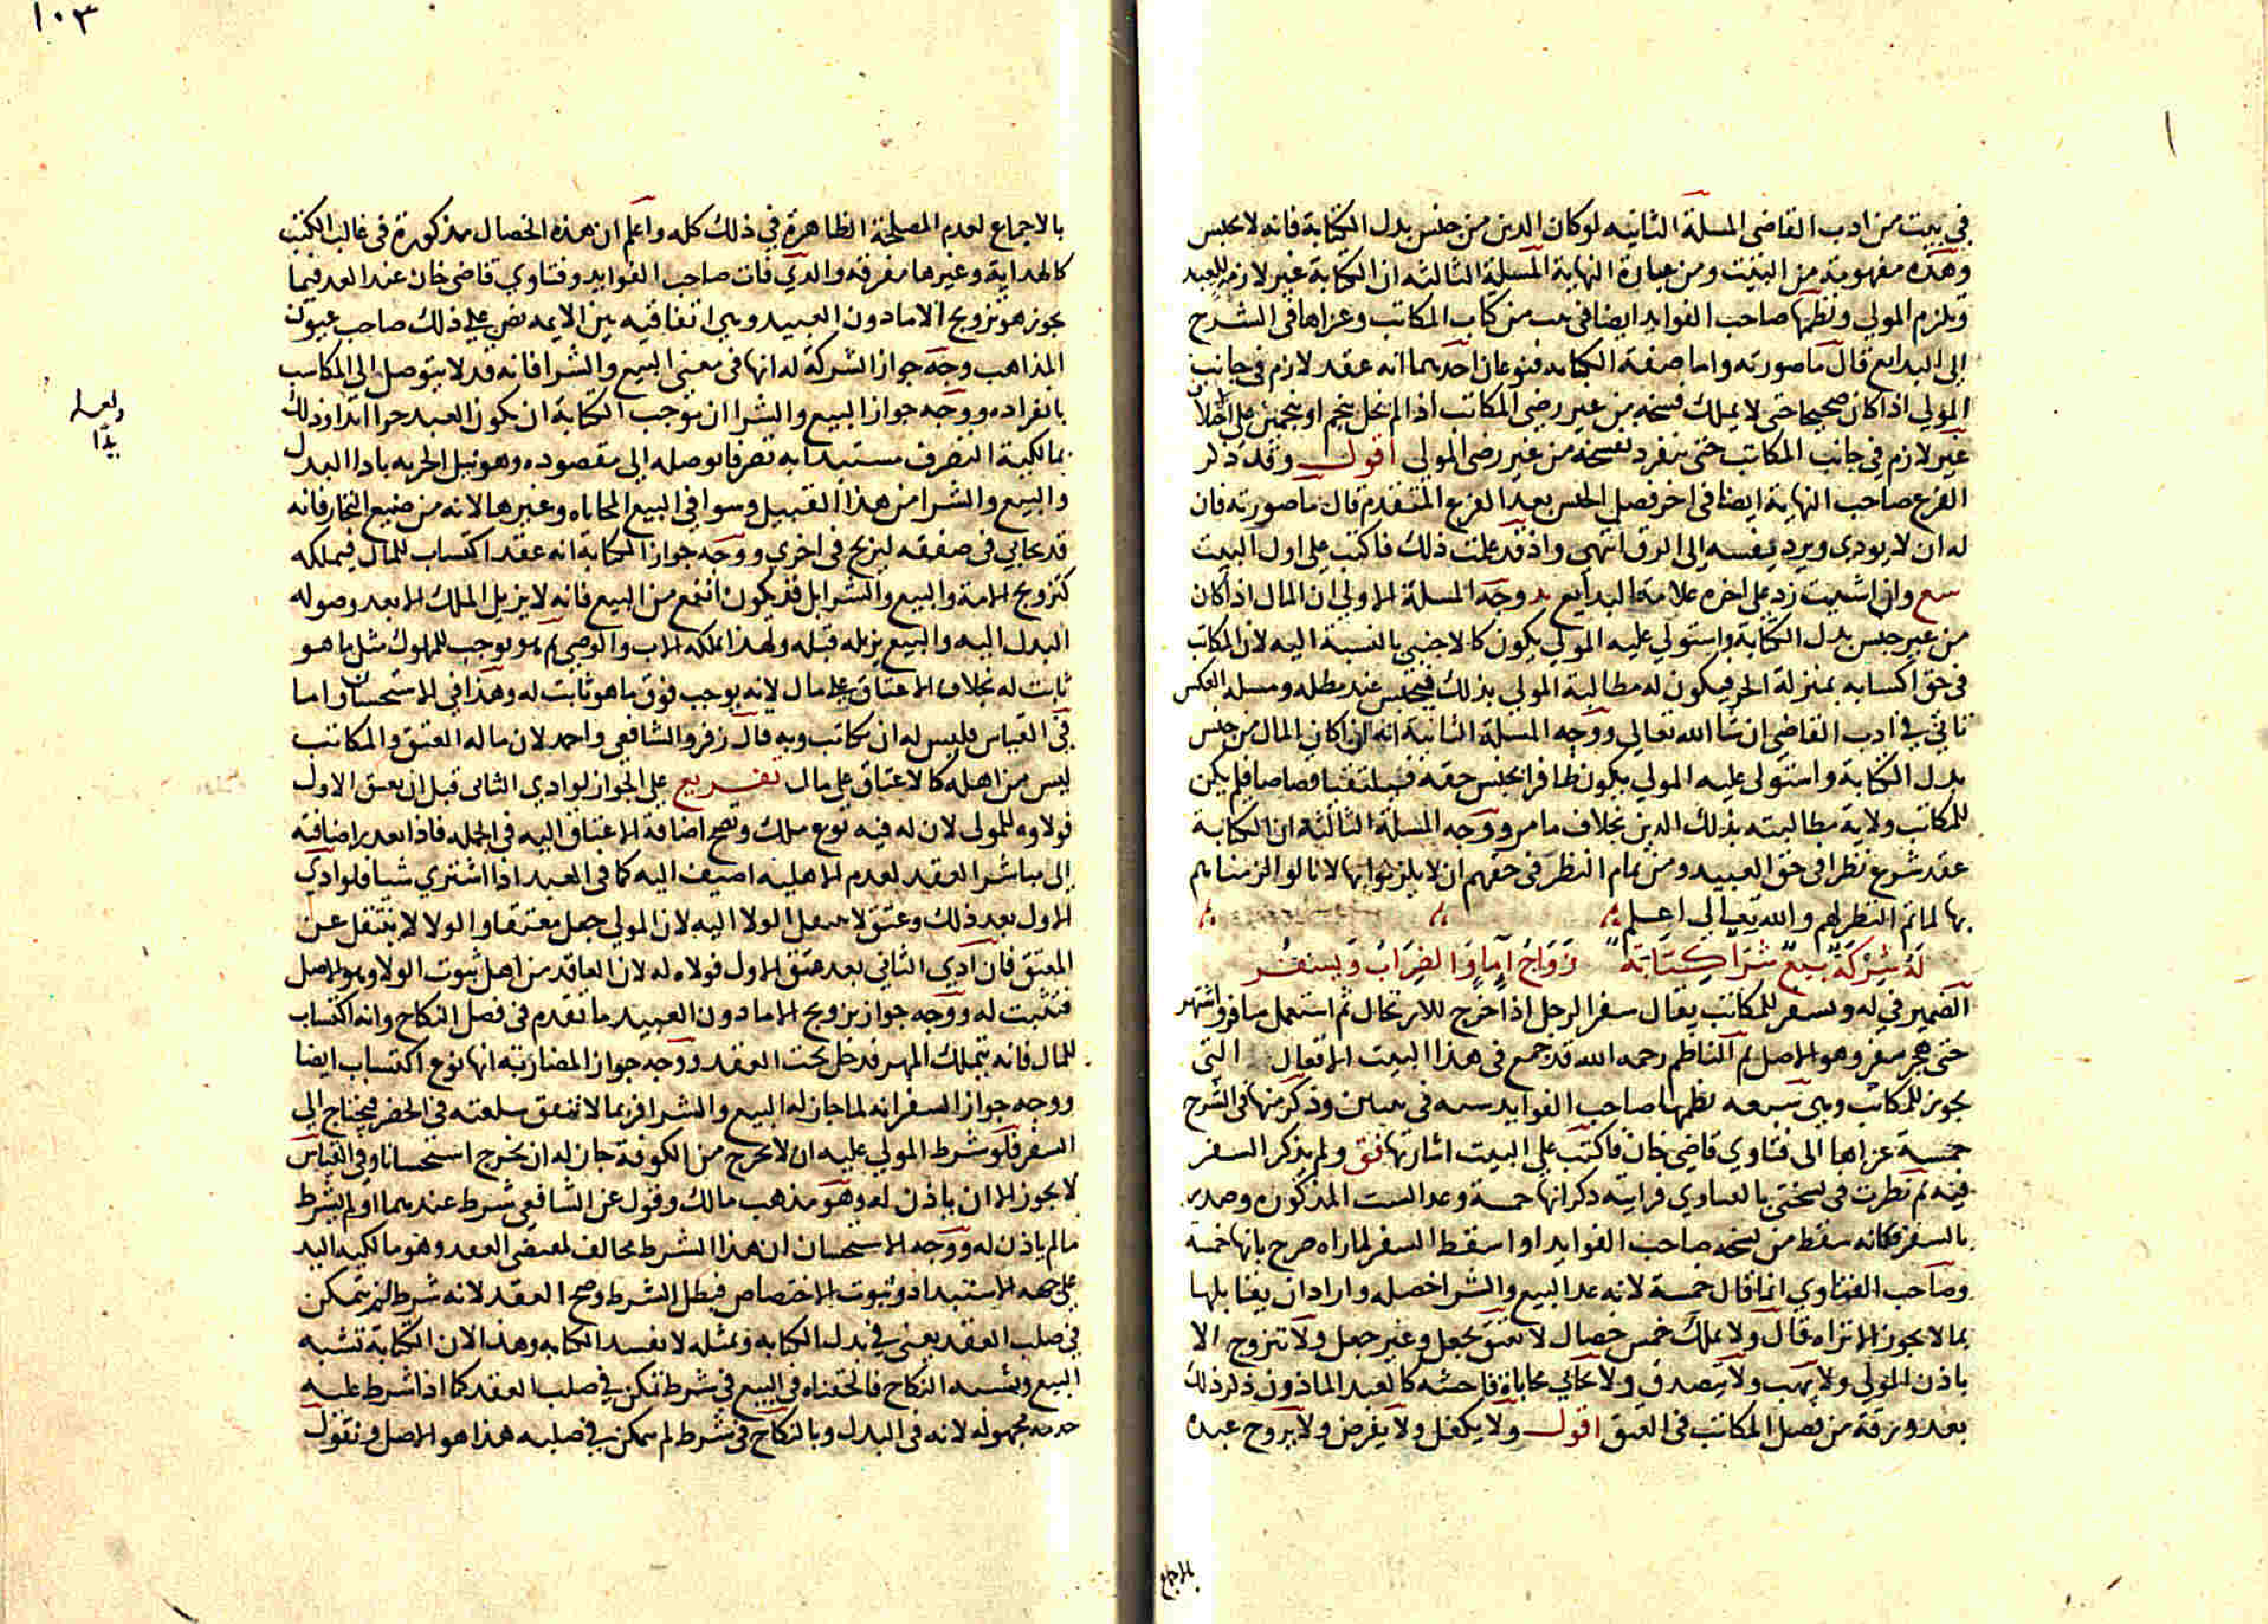 في بيت من ادب القاضي المسلة الثانيه لو كان الدين من جنس بدل الكتابة فانه لا يحبس
وهذه مفهومة من البيت ومن عبارة النهاية المسلة الثالثه ان الكتابة غير لازم للعبد
وتلزم المولي ونظمها صاحب الفوايد ايضا في بيت من كتاب المكاتب وعزاها في الشرح
الي البدايع قال ما صورته واما صفة الكتابه فنوعان احدهما انه عقد لازم في جانب
المولي اذا كان صحيحا حتى لا يملك فسخه من غير رضي المكاتب اذا لم يحل نجم او نجمين علي
غير لازم في جانب المكاتب حتى ينفرد بفسخه من غير رضي المولي اقول وقد ذكر
الفرع صاحب النهاية ايضا في اخر فصل الحبس بعد الفرع المتقدم قال ما صورته فان
له ان لا يودي ويرد نفسه الي الرق انتهي واذ قد علمت ذلك فاكتب علي اول البيت
سع وان اشيت زد علي اخره علامة البدايع بد ووجه المسلة الاولي ان المال اذا كان
من غير جنس بدل الكتابة واستولي عليه المولي يكون كالاجنبي بالنسبة اليه لان المكاتب
في حق اكسابه بمنزلة الحر فيكون له مطالبة المولي بذلك فيحبس عند مطله ومسلة العكس
تاتي في ادب القاضي ان شا الله تعالي ووجه المسلة الثانية انه ان كان المال من جنس
بدل الكتابة واستولي عليه المولي يكون ظافرا بجنس حقه فيلتقيا قصاصا فلم يكن
للمكاتب ولاية مطالبته بذلك الدين بخلاف ما مر ووجه المسلة الثالثه ان الكتابة
عقد شرع نظرا في حق العبيد ومن تمام النظر في حقهم ان لا يلزموا بها لانا لو الزمناهم
بها لما تم النظر لهم والله تعالي اعلم
لَهُ شِرْكَةٌ بَيْعٌ شَرَا كِتَابَةٌ زَوَاجُ آمَا وَالضِرَابُ وَيَسْفُر
الضمير في له ويسفر للمكاتب يقال سفر الرجل اذا خرج للارتحال ثم استعمل سافر واشتهر
حتى هجر سفر وهو الاصل ثم الناظم رحمه الله قد جمع في هذا البيت الافعال التي
يجوز للمكاتب وهي سبعه نظمها صاحب الفوايد سته في بيتين وذكر منها في الشرح
خمسة عزاها الي فتاوي قاضي خان فاكتب علي البيت اشارتها فق ولم يذكر السفر
فيه ثم نظرت في نسختي بالفتاوي فرايته ذكر انها خمسة وعد الست المذكوره وصدر
بالسفر فكانه سقط من نسخة صاحب الفوايد او اسقط السفر لما راه صرح بانها خمسة
وصاحب الفتاوي انما قال خمسة لانه عد البيع والشرا خصله واراد ان يقابلها
بما لا يجوز الا تراه قال ولا يملك خمس خصال لا يعتق بجعل وغير جعل ولا يتزوج الا
باذن المولي ولا يهب ولا يتصدق ولا يحابي محاباة فاحشه كالعبد الماذون ذكر ذلك
بعد ورقة من فصل المكاتب في العتق اقول ولا يكفل ولا يقرض ولا يزوج عبده
بالاجماع
١٠٣
بالاجماع لعدم المصلحة الظاهرة في ذلك كله واعلم ان هذه الخصال مذكورة في غالب الكتب
كالهداية وغيرها مفرقه والذي فات صاحب الفوايد وفتاوي قاضي خان عند العد فيما
يجوز هو تزويج الاما دون العبيد وهي اتفاقيه بين الايمه نص علي ذلك صاحب عيون
المذاهب وجه جواز الشركة له انها في معنى البيع والشرا فانه قد لا يتوصل الي المكاسب
بانفراده ووجه جواز البيع والشرا ان موجب الكتابة ان يكون العبد حرا يدا وذلك
بمالكية التصرف مستبدا به تصرفا يوصله الي مقصوده وهو نيل الحريه بادا البدل
والبيع والشرا من هذا القبيل وسوا في البيع المحاباه وغيرها لانه من صنيع التجار فانه
قد يحابي في صفقه ليربح في اخري ووجه جواز الكتابة انه عقد اكتساب للمال فيملكه
كتزويج الامة والبيع والشرا بل قد يكون انفع من البيع فانه لا يزيل الملك الا بعد وصوله
البدل اليه والبيع يزيله قبله ولهذا يملكه الاب والوصي ثم هو يوجب للمملوك مثل ما هو
ثابت له بخلاف الاعتاق علي مال لانه يوجب فوق ما هو ثابت له وهذا في الاستحسان واما
في القياس فليس له ان يكاتب وبه قال زفر والشافعي واحمد لان ماله العتق والمكاتب
ليس من اهله كالاعتاق علي مال تفريع علي الجواز لو ادي الثاني قبل ان يعتق الاول
فولاوه للمولي لان له فيه نوع ملك وتصح اضافة الاعتاق اليه في الجمله فاذا تعذر اضافته
الي مباشر العقد لعدم الاهليه اضيف اليه كما في العبد اذا اشتري شيا فلو ادي
الاول بعد ذلك وعتق لا ينتقل الولا اليه لان المولي جعل معتقا والولا لا ينتقل عن
المعتق فان ادي الثاني بعد عتق الاول فولاه له لان العاقد من اهل ثبوت الولا وهو الاصل
فتثبت له ووجه جواز تزويج الاما دون العبيد ما تقدم في فصل النكاح وانه اكتساب
للمال فانه يتملك المهر فدخل تحت العقد ووجه جواز المضاربه انها نوع اكتساب ايضا
ووجه جواز السفر انه لما جاز له البيع والشرا فربما لا تنفق سلعته في الحضر فيحتاج الي
السفر فلو شرط المولي عليه ان لا يخرج من الكوفة جاز له ان يخرج استحسانا وفي القياس
لا يجوز الا ان ياذن له وهو مذهب مالك وقول عن الشافعي شرط عندهما او لم يشرط
ما لم ياذن له ووجه الاستحسان ان هذا الشرط مخالف لمقتضي العقد وهو مالكية اليد
علي جهة الاستبداد وثبوت الاختصاص فبطل الشرط وصح العقد لانه شرط لم يتمكن
في صلب العقد يعني في بدل الكتابه وبمثله لا تفسد الكتابه وهذا لان الكتابة تشبه
البيع وتشبه النكاح فالحقناه في البيع في شرط تمكن في صلب العقد كما اذا شرط عليه
خدمة مجهوله لانه في البدل وبالنكاح في شرط لم يتمكن في صلبه هذا هو الاصل ونقول